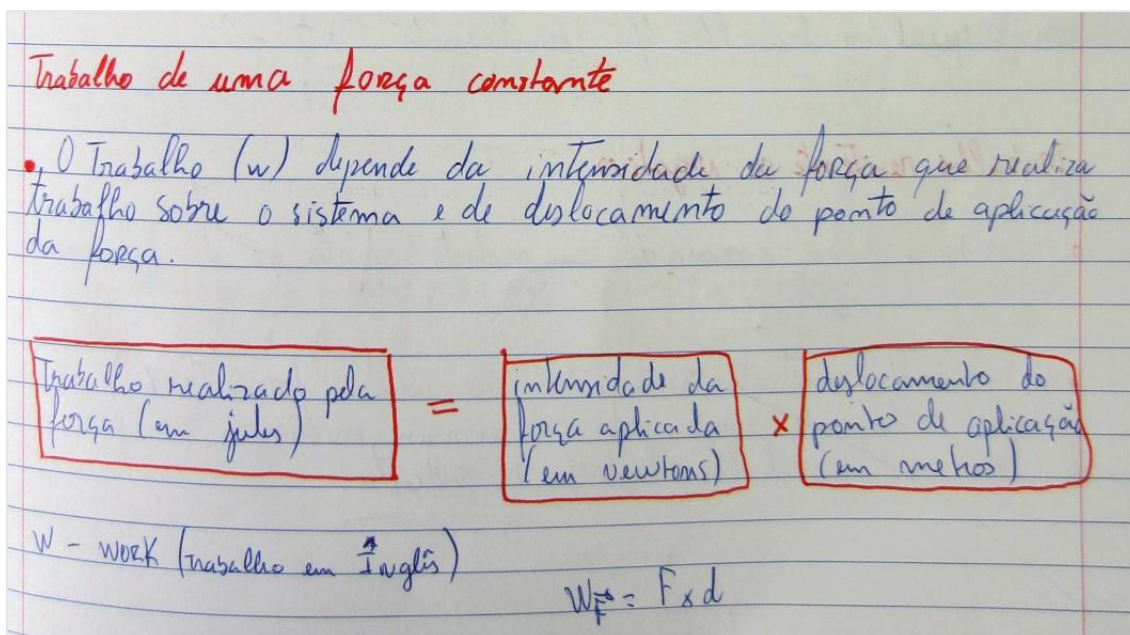 Trabalho de uma força constante
• O Trabalho (w) depende da intensidade da força que realiza
trabalho sobre o sistema e de deslocamento do ponto de aplicação
da força.
Trabalho realizado pela
força (em jules)
=
intensidade da
força aplicada
(em newtons)
×
deslocamento do
ponto de aplicação
(em metros)
W - WORK (trabalho em Inglês)
W_F⃗ = F x d